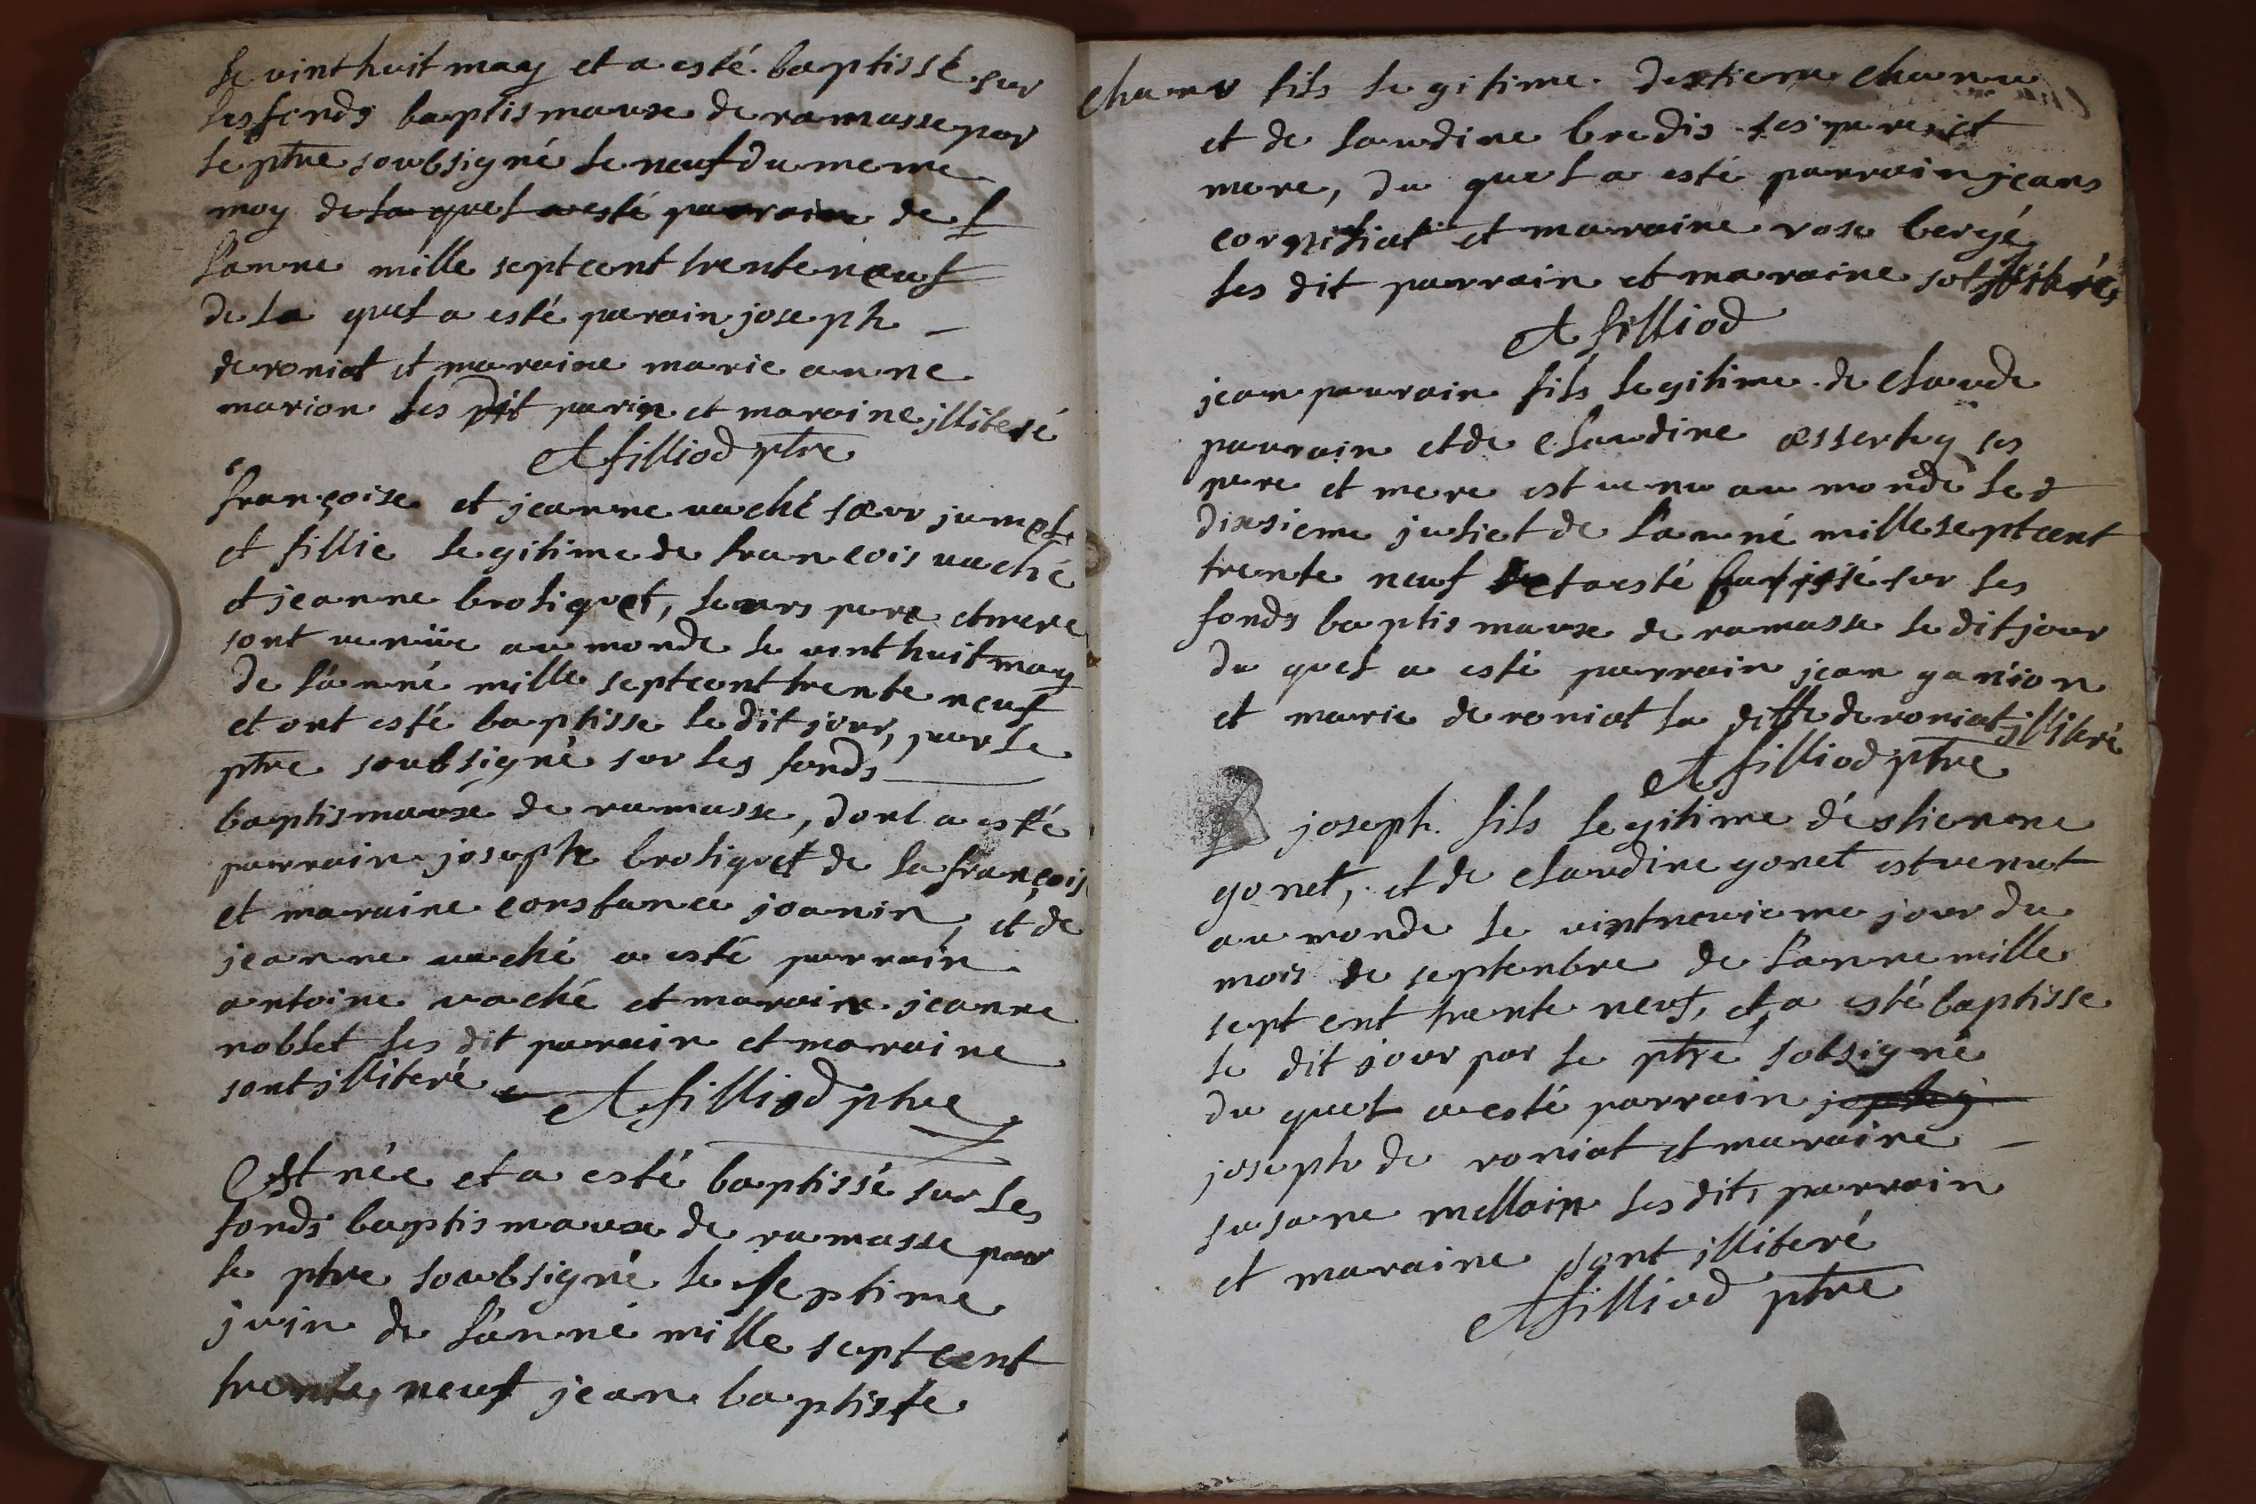 le vint huit may et a esté baptissé sur
les fonds baptismaux de ramasse par
le ptre soubsigné le neuf du meme
moy de la quel a esté parrain de l
lanne mille sept cent trente neuf
de la quel a esté parain joseph
deroniat et maraine marie anne
marion les dit parin et maraine jlliteré
A filliod ptre
françoise et jeanne vaché sœur jumele
et fillie legitime de francois vaché
et jeanne broliquet, leurs pere et mere
sont venüe au monde le vint huit may
de l'anné mille sept cent trente neuf
et ont esté baptisse le dit jour, par le
ptre soubsigné sur les fonds
baptismaux de ramasse, dont a esté
parrain joseph broliquet de la françois
et maraine constance joanin, et de
jeanne vaché a esté parrain
antoine vaché et maraine jeanne
noblet les dit parain et maraine
sont jlliteré A filliod ptre
Est née et a esté baptissé sur les
fonds baptismaux de ramasse par
le ptre soubsigné le septime
juin de l'anné mille sept cent
trente neuf jean baptiste
chanu fils legitime destienne chanu
et de laudine bredis ses pere et
mere, du quel a esté parrain jean
et maraine rose bergé
les dit parrain et maraine
A filliod
jean paurain fils legitime de claude
paurain et de claudine essertey ses
pere et mere est venu au monde le
dixsieme juliet de l'anné mille sept cent
trente neuf et a esté batissé sur les
fonds baptismaux de ramasse le dit jour
du quel a esté parrain jean ganion
et marie deroniat la ditte deroniat jlliteré
A filliod ptre
joseph fils legitime d'éstienne
gonet, et de claudine gonet est venut
au monde le vintneuvieme jour du
mois de septenbre de l'anne mille
sept ent trente neuf, et a esté baptisse
le dit jour par le ptre sobsigné
du quel a esté parrain
joseph de roniat et maraine
susane mellain les dit parrain
et maraine sont jlliteré
A filliod ptre